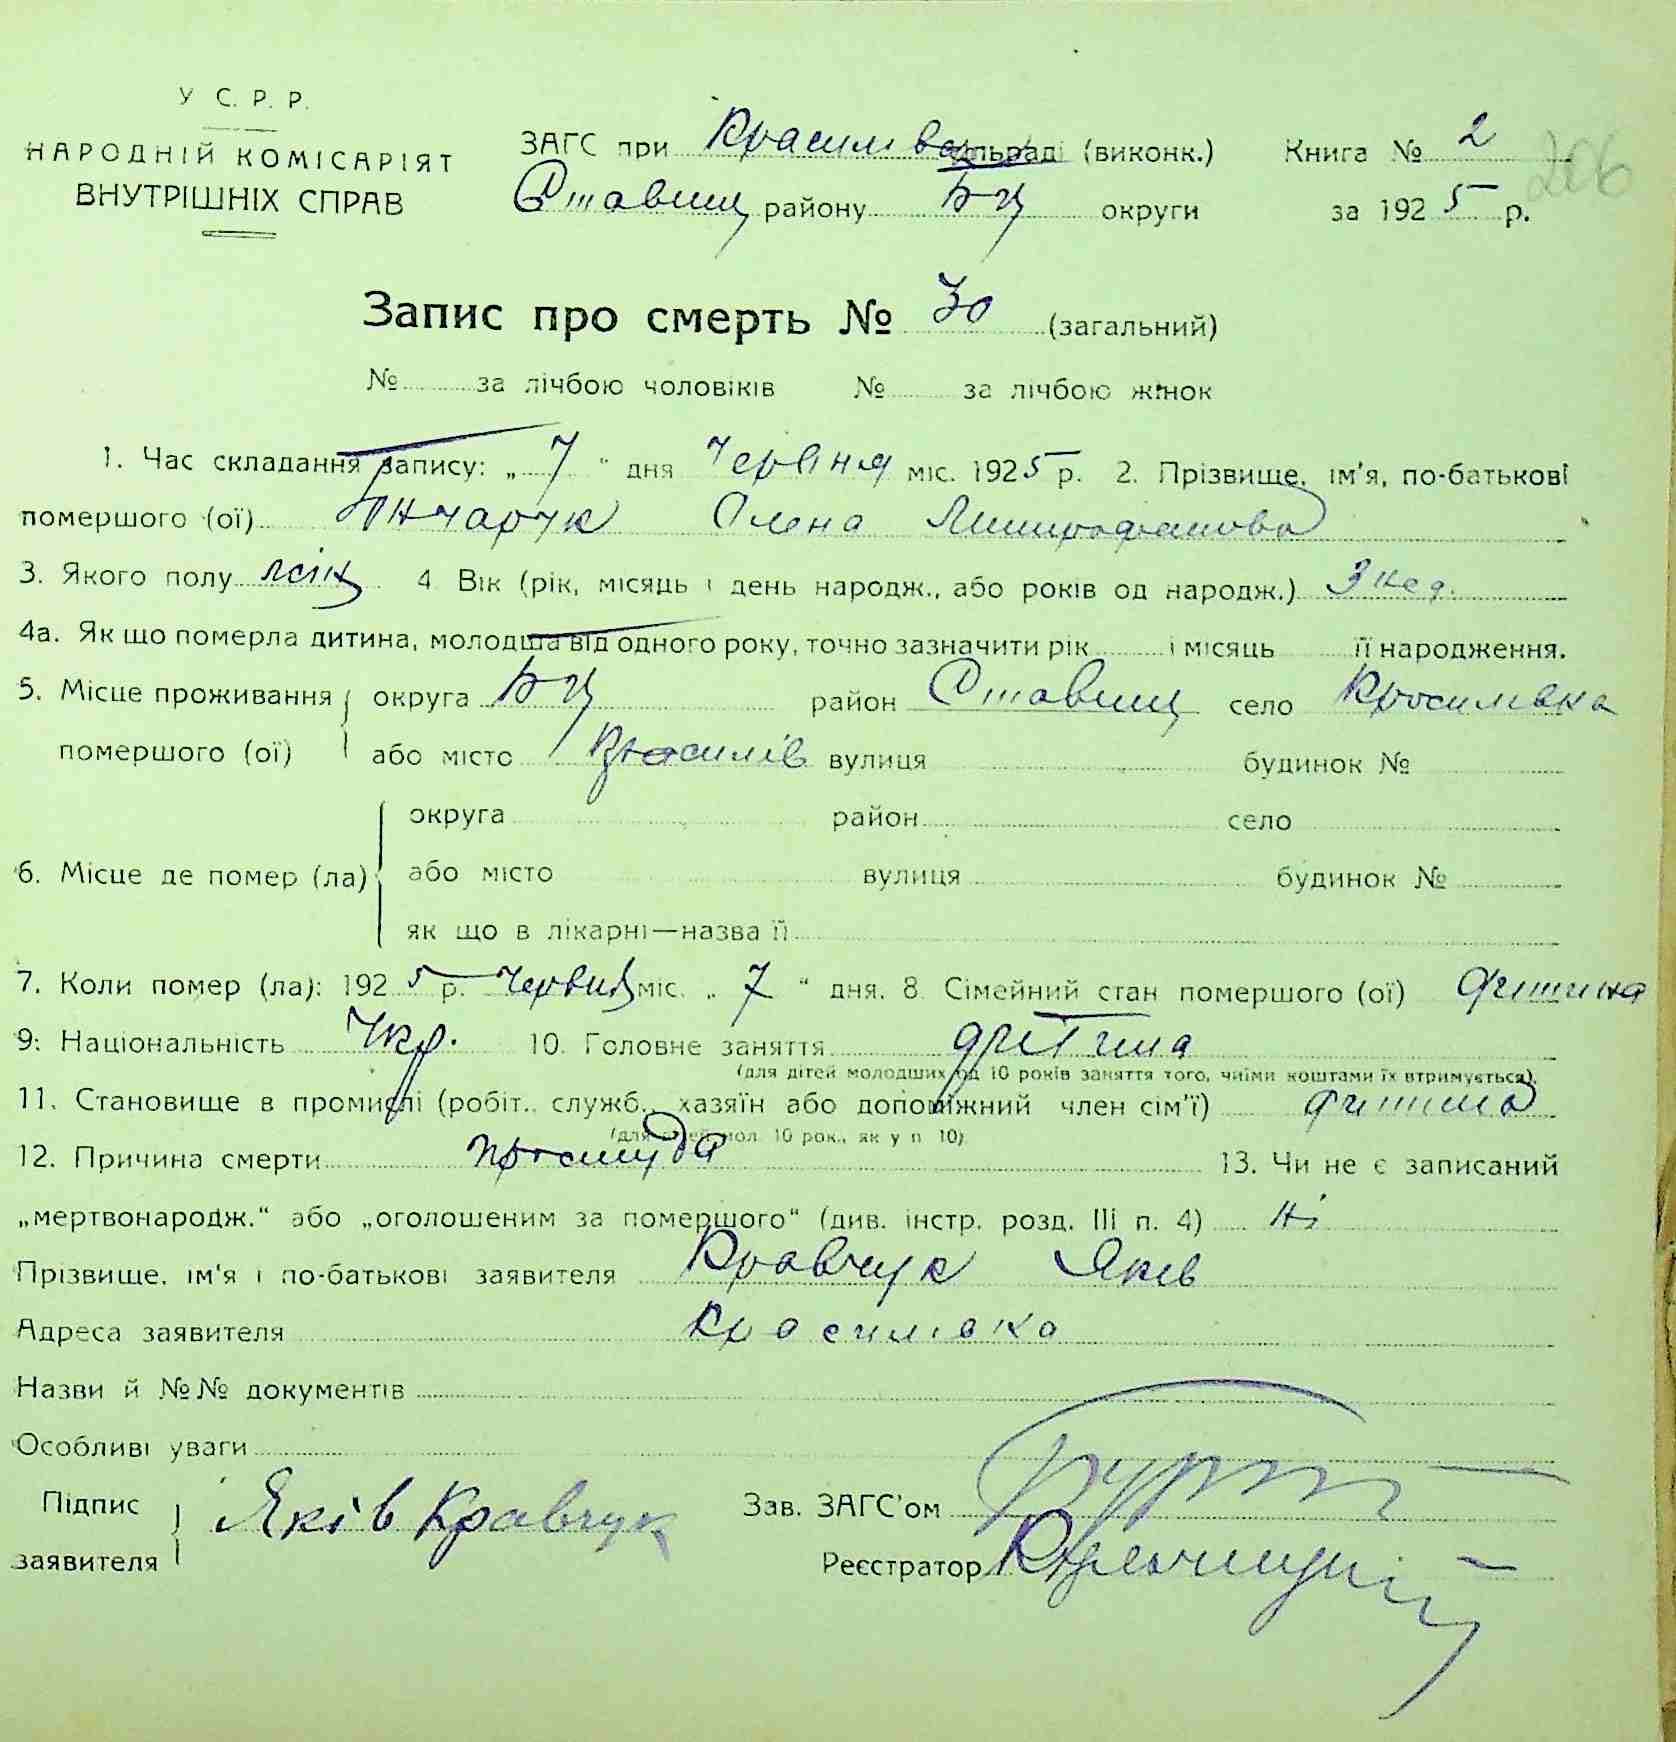 У С. Р. Р.
НАРОДНІЙ КОМІСАРІЯТ
ВНУТРІШНІХ СПРАВ
ЗАГС при Красилівс сільраді (виконк.) Книга № 2
206
Ставищ району БЦ округи за 1925 р.
Запис про смерть № 30 (загальний)
№ за лічбою чоловіків № за лічбою жінок
1. Час складання запису: „ 7 “ дня Червня міс. 1925 р. 2. Прізвище, ім'я, по-батькові
помершого (ої) Олена Митрофанова
3. Якого полу жін 4 Вік (рік, місяць і день народж., або років од народж.) 3 нед.
4а. Як що померла дитина, молодша від одного року, точно зазначити рік і місяць її народження.
5. Місце проживання округа БЦ район Ставищ село Красилівка
помершого (ої) або місто Красилів вулиця будинок №
округа район село
6. Місце де помер (ла) або місто вулиця будинок №
як що в лікарні—назва її
7. Коли помер (ла): 1925 р. Червня міс. „ 7 “ дня. 8 Сімейний стан помершого (ої) дитина
9: Національність Укр. 10. Головне заняття дитина
(для дітей молодших од 10 років заняття того, чиїми коштами їх втримується).
11. Становище в промислі (робіт., служб., хазяїн або допоміжний член сім'ї) дитина
(для дітей мол. 10 рок., як у п 10)
12. Причина смерти простуда 13. Чи не є записаний
„мертвонародж.“ або „оголошеним за помершого“ (див. інстр. розд. III п. 4) ні
Прізвище, ім'я і по-батькові заявителя Кравчук Яків
Адреса заявителя Красилівка
Назви й №№ документів
Особливі уваги
Підпис
заявителя Яків Кравчук
Зав. ЗАГС'ом
Реєстратор